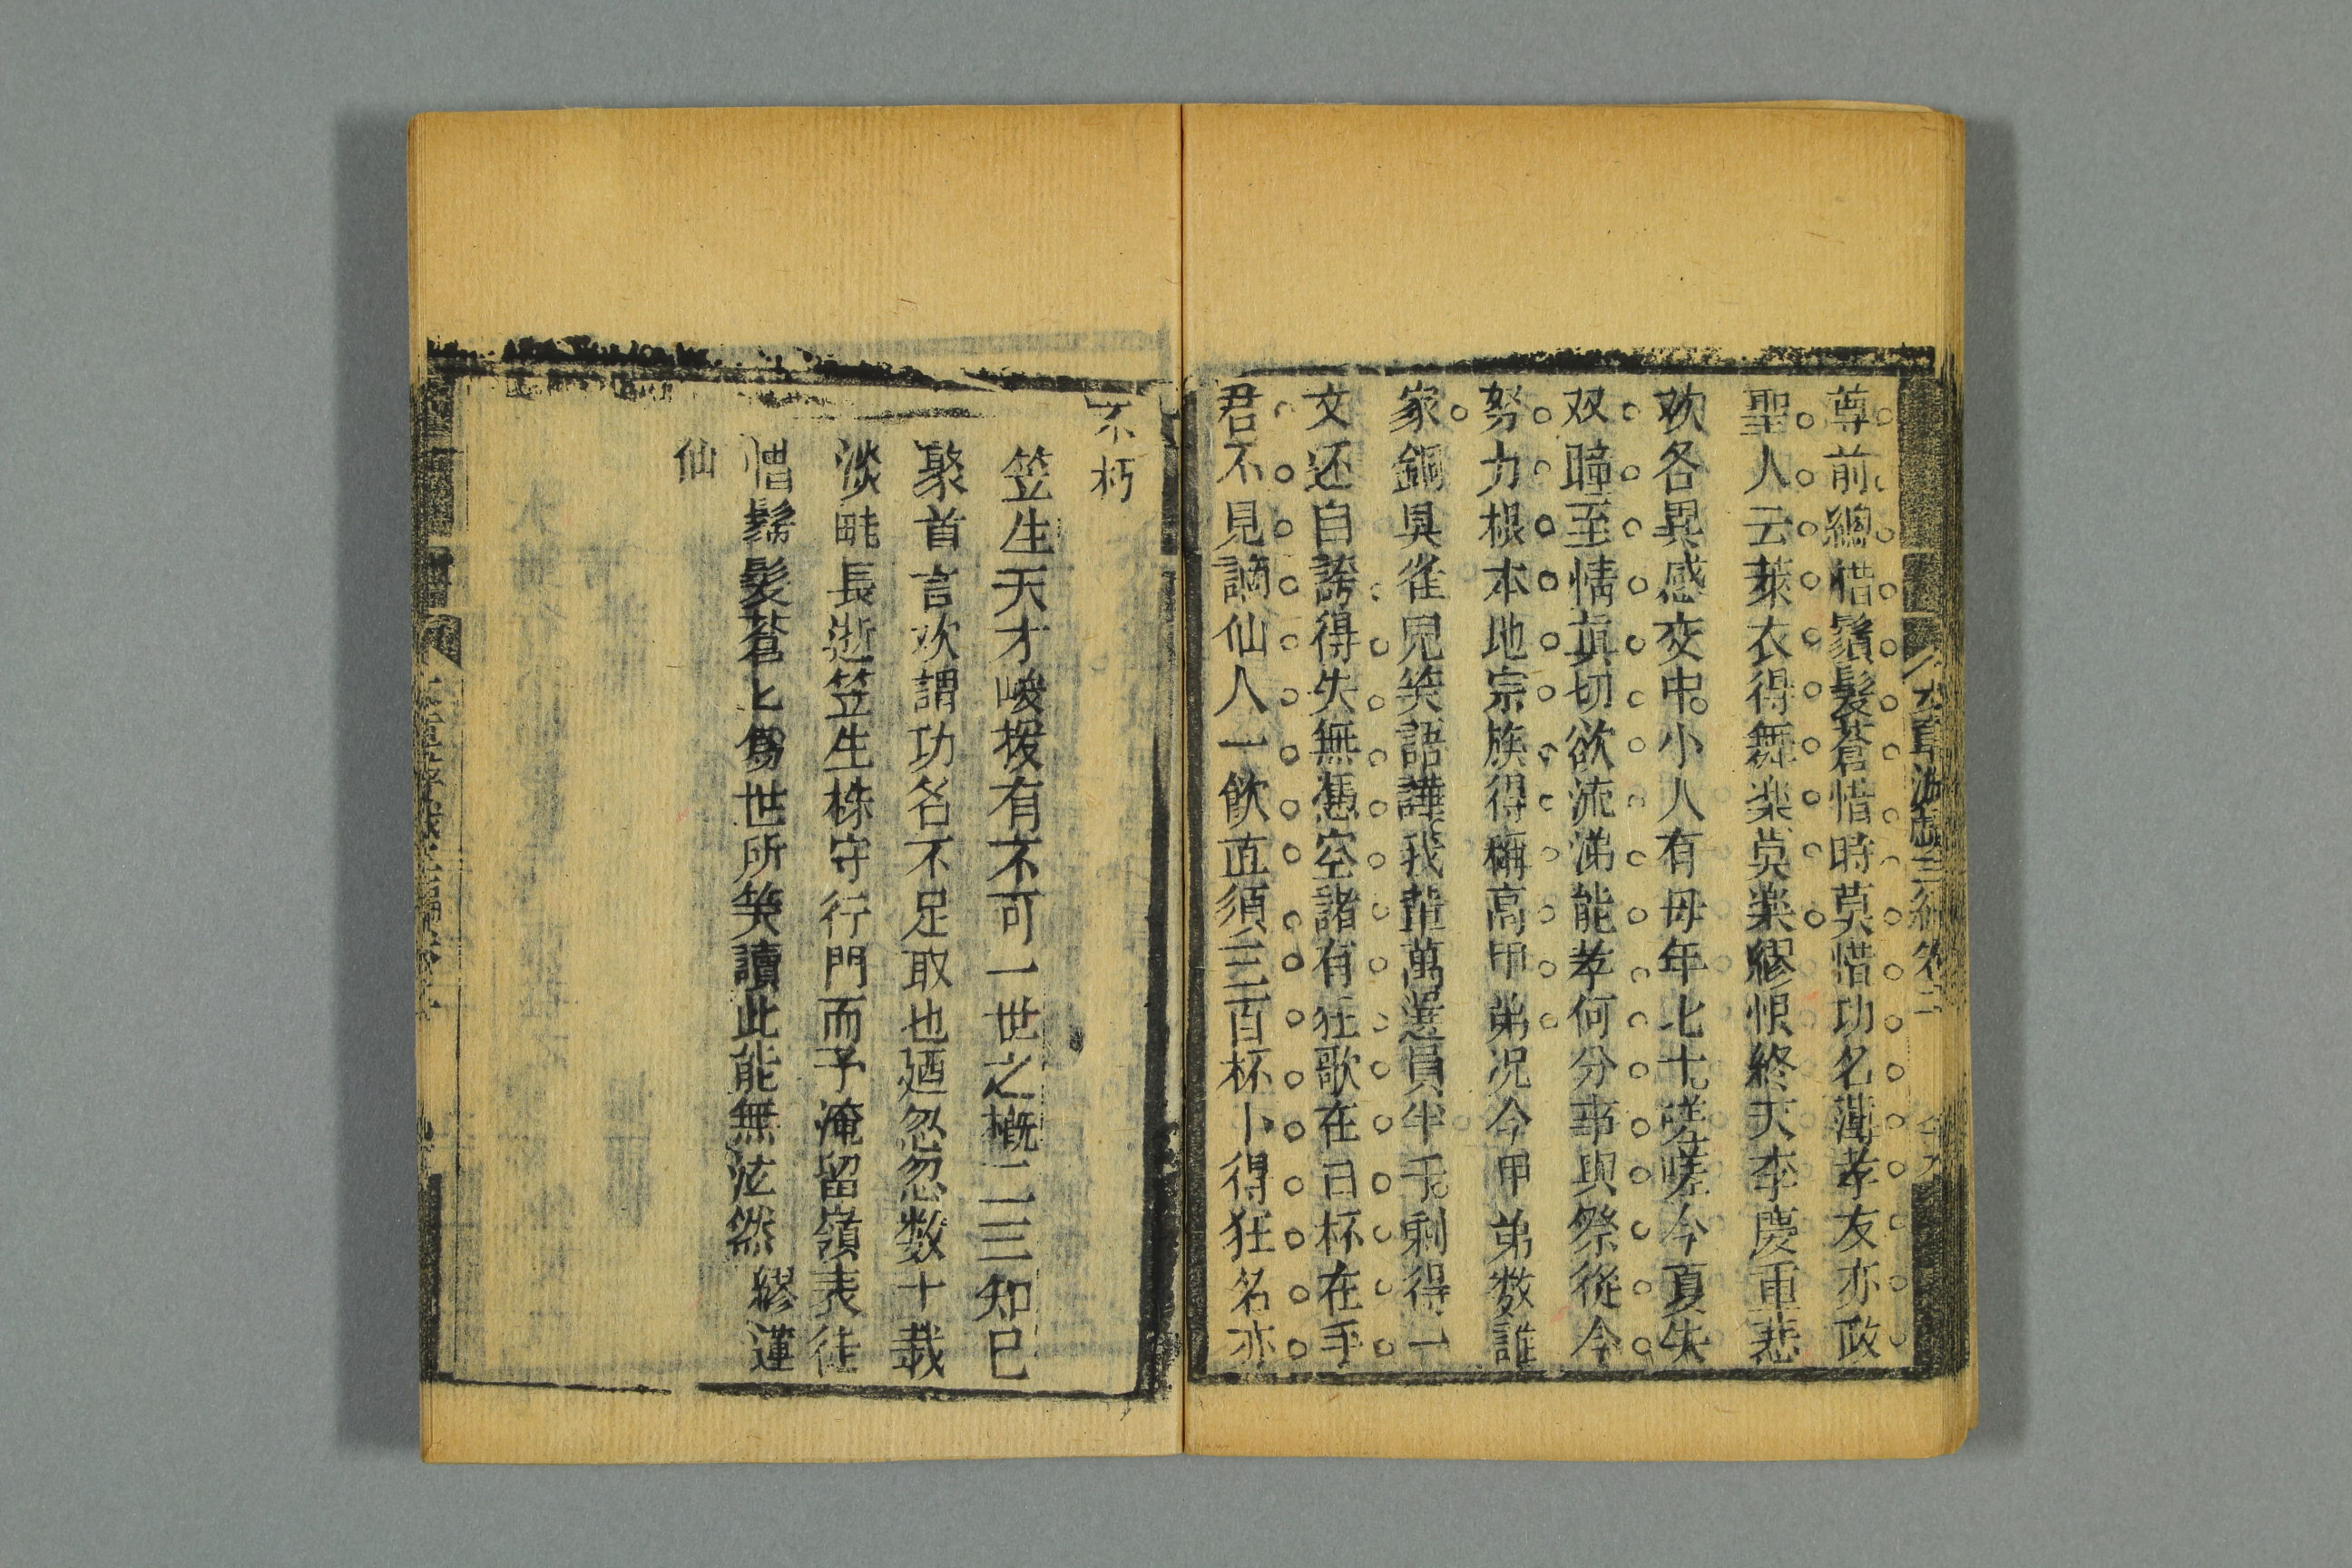 尊前總惜鬚髮蒼惜時莫惜功名薄孝友亦政
聖人云萊衣得舞楽莫楽繆恨終天李慶重悲
欢各異感交中小人有母年七十嗟嗟今夏失
双瞳至情真切欲流涕能孝何分事與祭從今
努力根本地宗族得稱高甲弟况今甲弟数誰
家銅臭雀児笑語譁我輩萬選員半千剩得一
文还自誇得失無憑空諸有狂歌在口杯在手
君不見謫仙人一飲直須三百杯卜得狂名亦
不朽
笠生天才峻拔有不可一世之概二三知已
聚首言欢謂功名不足取也廼忽忽数十载
淡畦長逝笠生株守衍門而予淹留嶺表徒
惜鬍髮蒼上為世所笑讀此能無泫然 繆蓮
仙